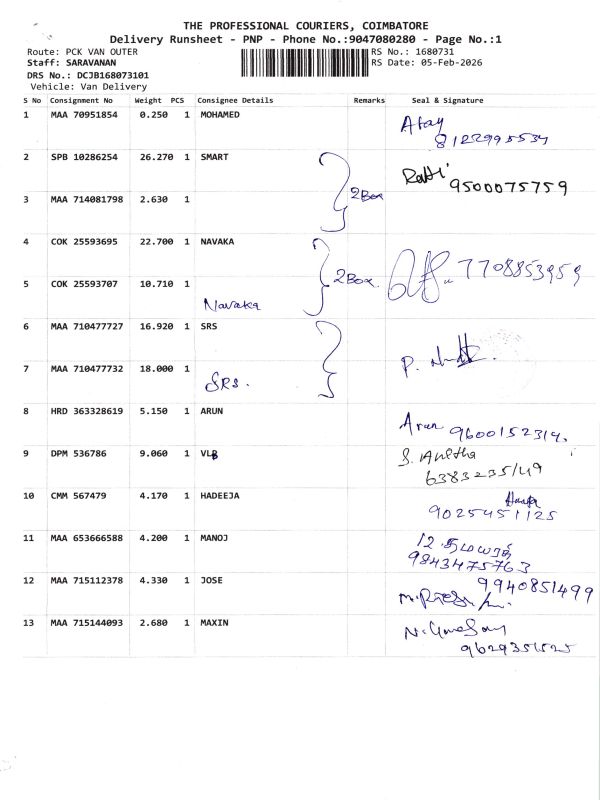 THE PROFESSIONAL COURIERS, COIMBATORE
Delivery Runsheet - PNP - Phone No.:9047080280 - Page No.:1
Route: PCK VAN OUTER RS No.: 1680731
Staff: SARAVANAN RS Date: 05-Feb-2026
DRS No.: DCJB168073101
Vehicle: Van Delivery
S No Consignment No Weight PCS Consignee Details Remarks Seal & Signature
1 MAA 70951854 0.250 1 MOHAMED
8122995534
2 SPB 10286254 26.270 1 SMART
2 Box 9500075759
3 MAA 714081798 2.630 1
4 COK 25593695 22.700 1 NAVAKA
2 Box. 7708853959
5 COK 25593707 10.710 1
Navaka
6 MAA 710477727 16.920 1 SRS
7 MAA 710477732 18.000 1
SRS.
8 HRD 363328619 5.150 1 ARUN
Arun 9600152314.
9 DPM 536786 9.060 1 VLB
S. Anitha
10 CMM 567479 4.170 1 HADEEJA
9025451125
11 MAA 653666588 4.200 1 MANOJ
9843475763
12 MAA 715112378 4.330 1 JOSE
9940851499
13 MAA 715144093 2.680 1 MAXIN
9629351525